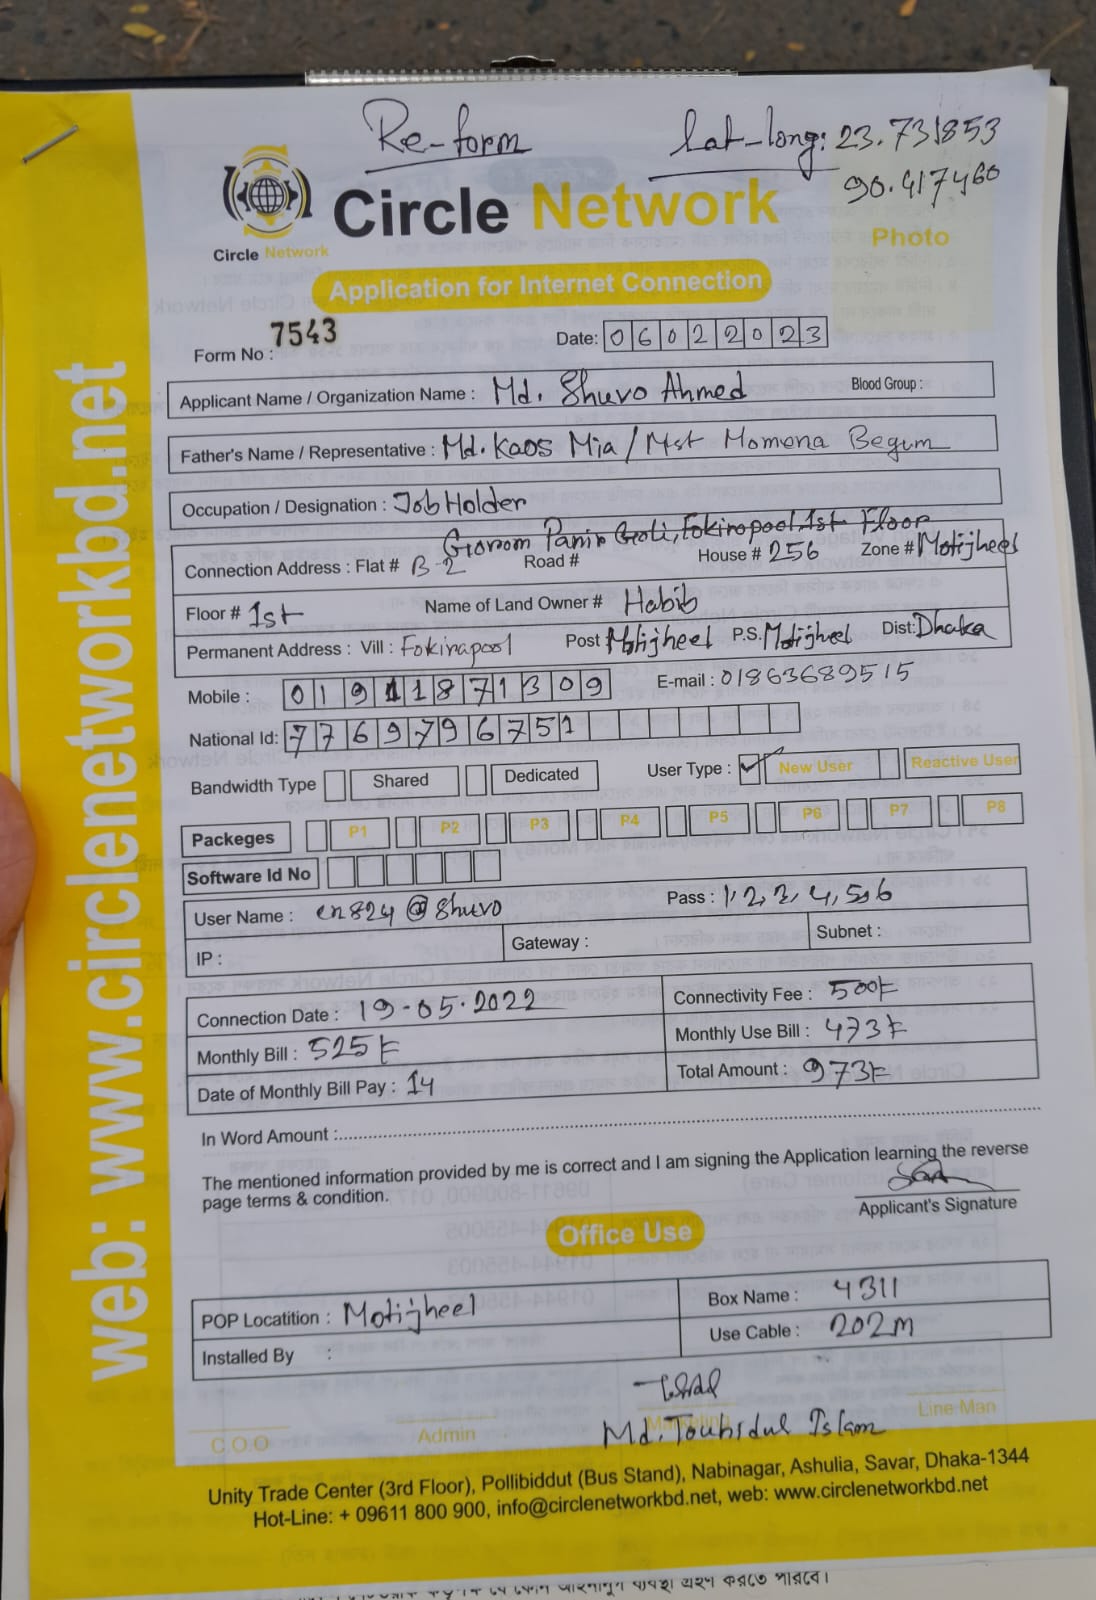 Re-form
lat-long: 23.731853
90.417460
Circle Network
Circle Network
Photo
Application for Internet Connection
Form No : 7543
Date: 06022023
Applicant Name / Organization Name : Md. Shuvo Ahmed Blood Group :
Father's Name / Representative : Md. Kaos Mia / Mst Momena Begum
Occupation / Designation : Job Holder
Gorom Panir Goli, Fokirapool, 1st Floor
Connection Address : Flat # B-2 Road # House # 256 Zone # Motijheel
Floor # 1st Name of Land Owner # Habib
Permanent Address : Vill : Fokirapool Post Motijheel P.S. Motijheel Dist: Dhaka
Mobile : 01911871309 E-mail : 01863689515
National Id: 7769796751
Bandwidth Type Shared Dedicated User Type : ✓ New User Reactive User
Packeges P1 P2 P3 P4 P5 P6 P7 P8
Software Id No
User Name : cn824@Shuvo Pass : 1,2,3,4,5,6
IP : Gateway : Subnet :
Connection Date : 19-05-2022 Connectivity Fee : 500৳
Monthly Bill : 525৳ Monthly Use Bill : 473৳
Date of Monthly Bill Pay : 14 Total Amount : 973৳
In Word Amount :
The mentioned information provided by me is correct and I am signing the Application learning the reverse
page terms & condition.
Applicant's Signature
Office Use
POP Locatition : Motijheel Box Name : 4311
Installed By : Use Cable : 202m
Md. Touhidul Islam
C.O.O Admin Marketing Line Man
Unity Trade Center (3rd Floor), Pollibiddut (Bus Stand), Nabinagar, Ashulia, Savar, Dhaka-1344
Hot-Line: + 09611 800 900, info@circlenetworkbd.net, web: www.circlenetworkbd.net
web: www.circlenetworkbd.net
ব্যবস্থা গ্রহণ করতে পারবে।